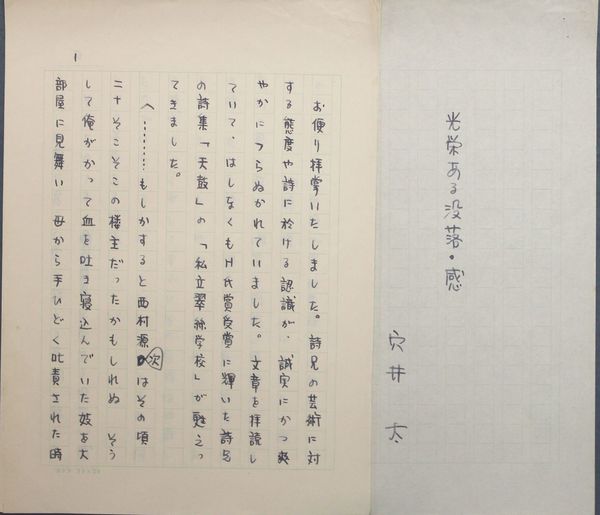 光栄ある没落・感
穴井太
お便り拝掌いたしました。詩兄の芸術に対
する態度や詩に於ける認識が、誠実にかつ爽
やかにつらぬかれていました。文章を拝読し
ていて、はしなくもH氏賞受賞に輝いた詩兄
の詩集「天鼓」の「私立翠糸学校」が甦えっ
てきました。
へ………もしかすると西村源次はその頃
二十そこそこの楼主だったかもしれぬ そう
して俺がかって血を吐き寝込んでいた妓を大
部屋に見舞い 母から手ひどく叱責された時
1